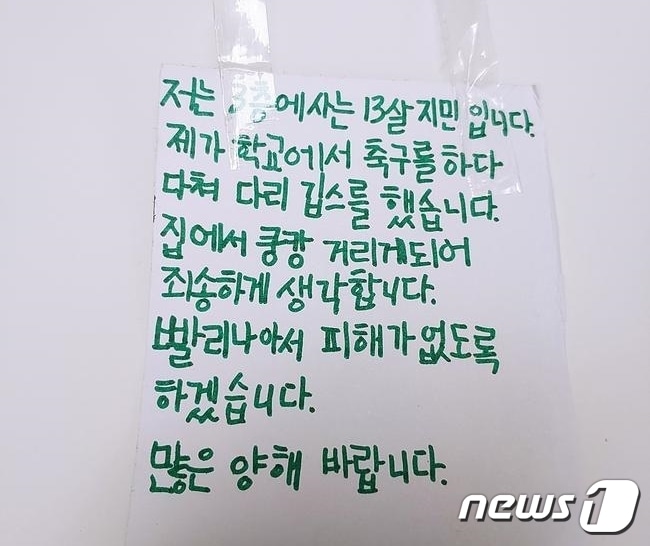 저는 3층에사는 13살 지민 입니다.
제가 학교에서 축구를 하다
다쳐 다리 깁스를 했습니다.
집에서 쿵캉 거리게되어
죄송하게 생각합니다.
빨리나아서 피해가없도록
하겠습니다.
많은 양해 바랍니다.
news1